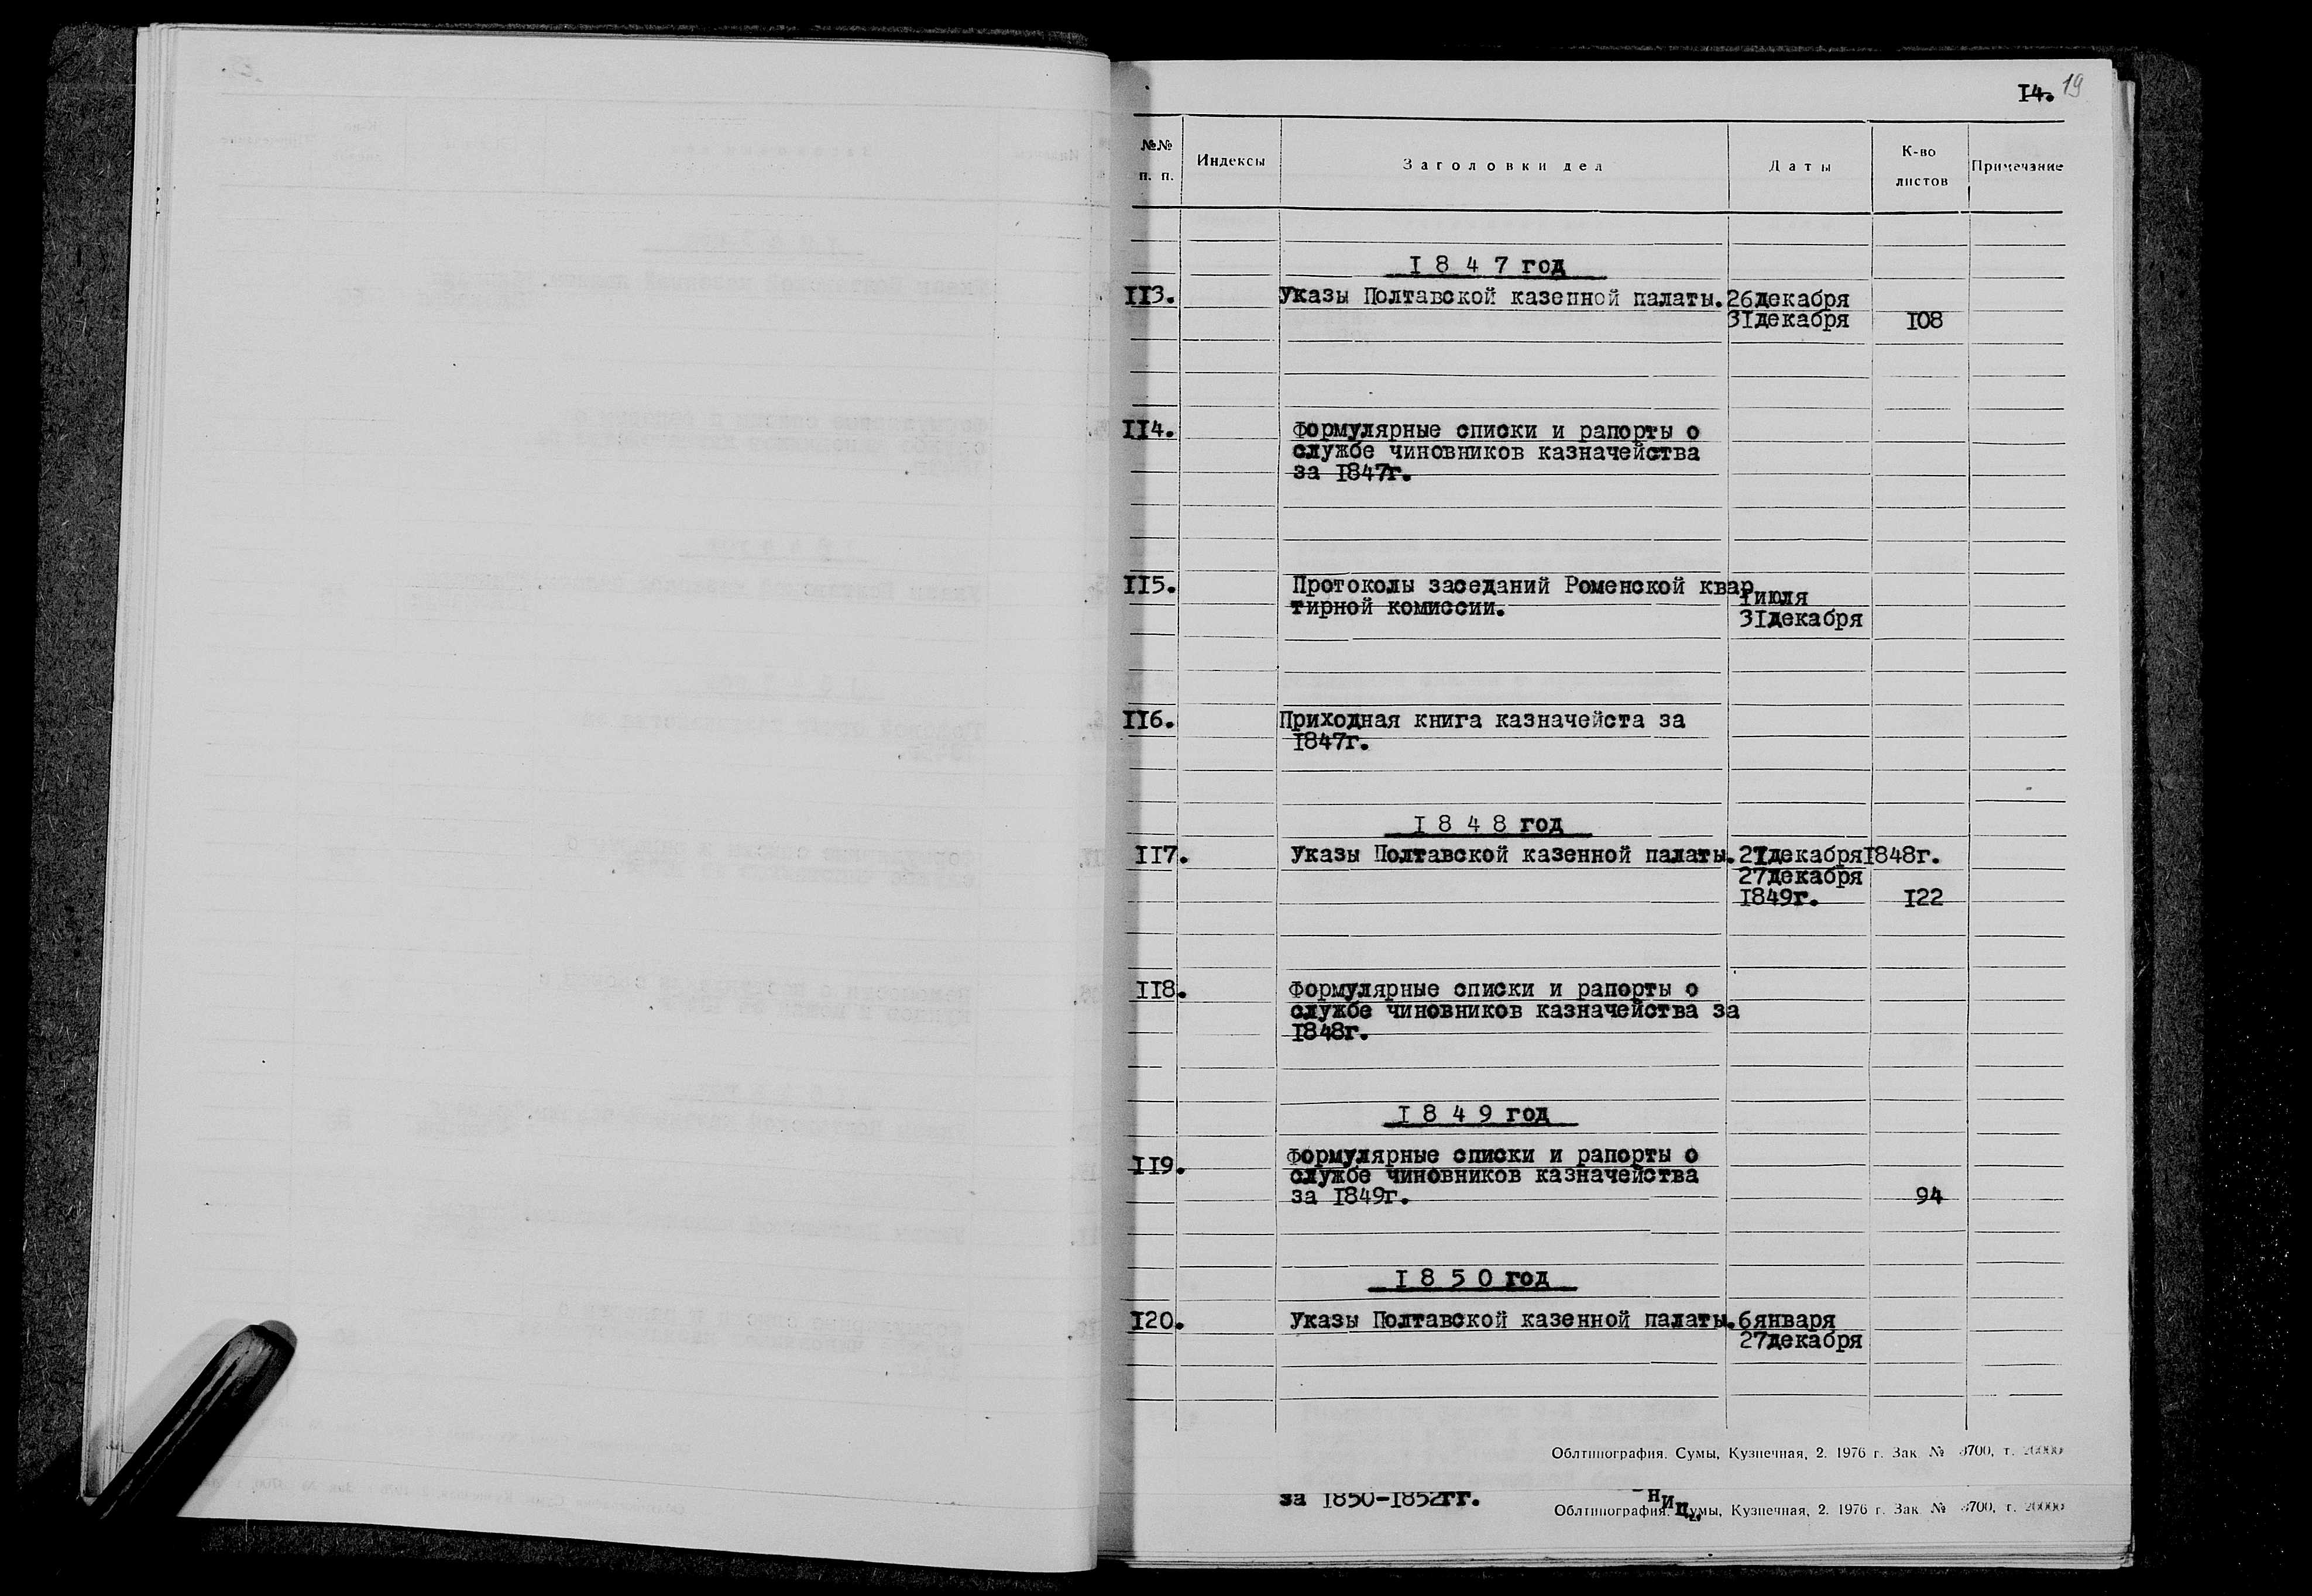 14. 19
№№ п. п. Индексы Заголовки дел Даты К-во листов Примечание
1847 год
113. Указы Полтавской казенной палаты. 26декабря
31декабря 108
114. Формулярные списки и рапорты о
службе чиновников казначейства
за 1847г.
115. Протоколы заседаний Роменской квар
тирной комиссии. 1июля
31декабря
116. Приходная книга казначейста за
1847г.
1848 год
117. Указы Полтавской казенной палаты. 27декабря1848г.
27декабря
1849г. 122
118. Формулярные списки и рапорты о
службе чиновников казначейства за
1848г.
1849 год
119. Формулярные списки и рапорты о
службе чиновников казначейства
за 1849г. 94
1850 год
120. Указы Полтавской казенной палаты. 6января
27декабря
Облтипография. Сумы, Кузнечная, 2. 1976 г. Зак. № 3700, т. 20000
за 1850-1852гг. ниц.
Облтипография. Сумы, Кузнечная, 2. 1976 г. Зак. № 3700, т. 20000